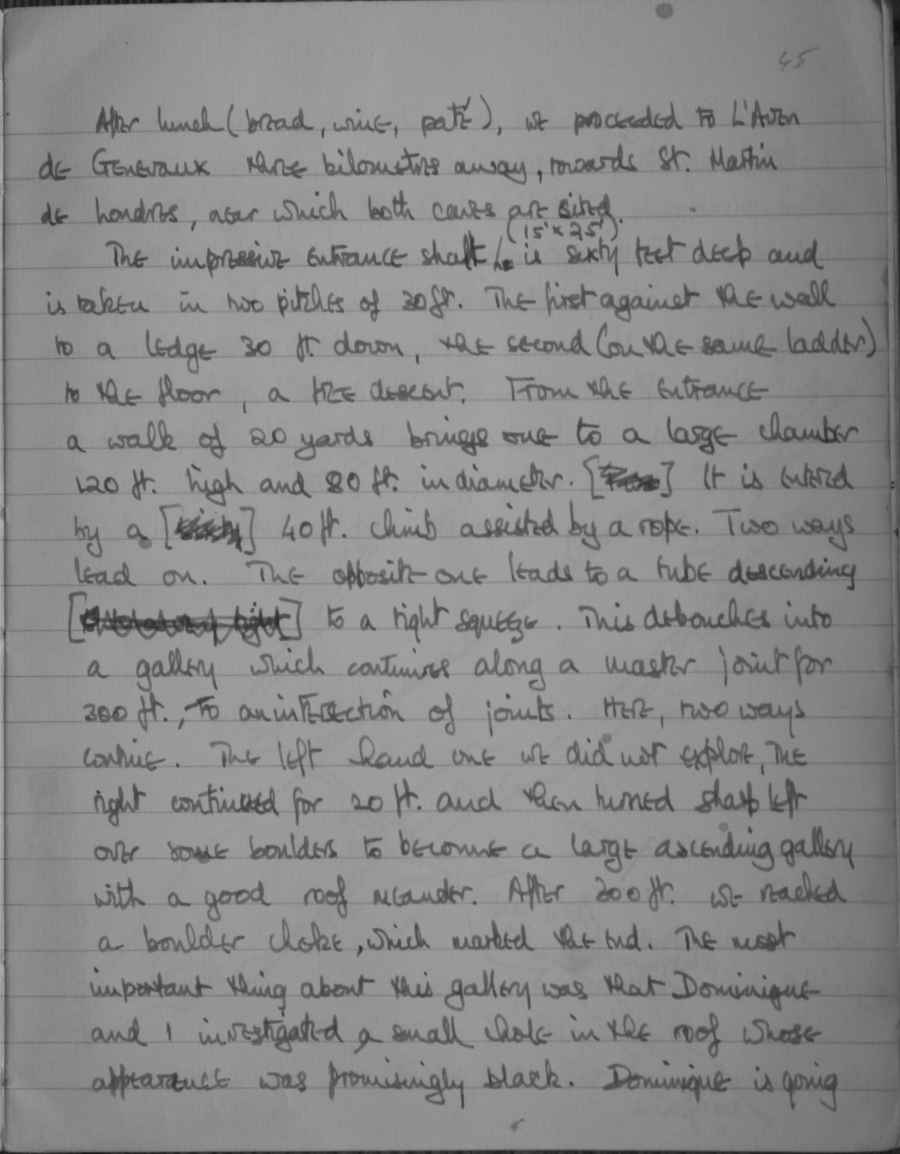 45
After lunch (bread, wine, paté), we proceeded to L'Aven
de Genevaux three kilometres away, towards St. Martin
de Londres, near which both caves are sited.
(15' x 25')
The impressive entrance shaft is sixty feet deep and
is taken in two pitches of 30ft. The first against the wall
to a ledge 30 ft down, the second (on the same ladder)
to the floor, a free descent. From the entrance
a walk of 20 yards brings one to a large chamber
120 ft. high and 80 ft. in diameter. [] It is entered
by a [] 40 ft. climb assisted by a rope. Two ways
lead on. The opposite one leads to a tube descending
[] to a tight squeeze. This debouches into
a gallery which continues along a master joint for
300 ft., to an intersection of joints. Here, two ways
continue. The left hand one we did not explore, the
right continued for 20 ft. and then turned sharp left
over some boulders to become a large ascending gallery
with a good roof meander. After 200 ft. we reached
a boulder choke, which marked the end. The most
important thing about this gallery was that Dominique
and I investigated a small hole in the roof whose
appearance was promisingly black. Dominique is going